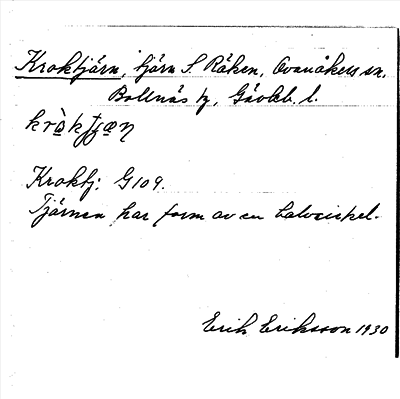 Kroktjärn, tjärn S. Räken, Ovanåkers sn.
Bollnäs tg, Gävleb. l.
Kroktj: G109.
Tjärnen har form av en halvcirkel.
Erik Eriksson 1930